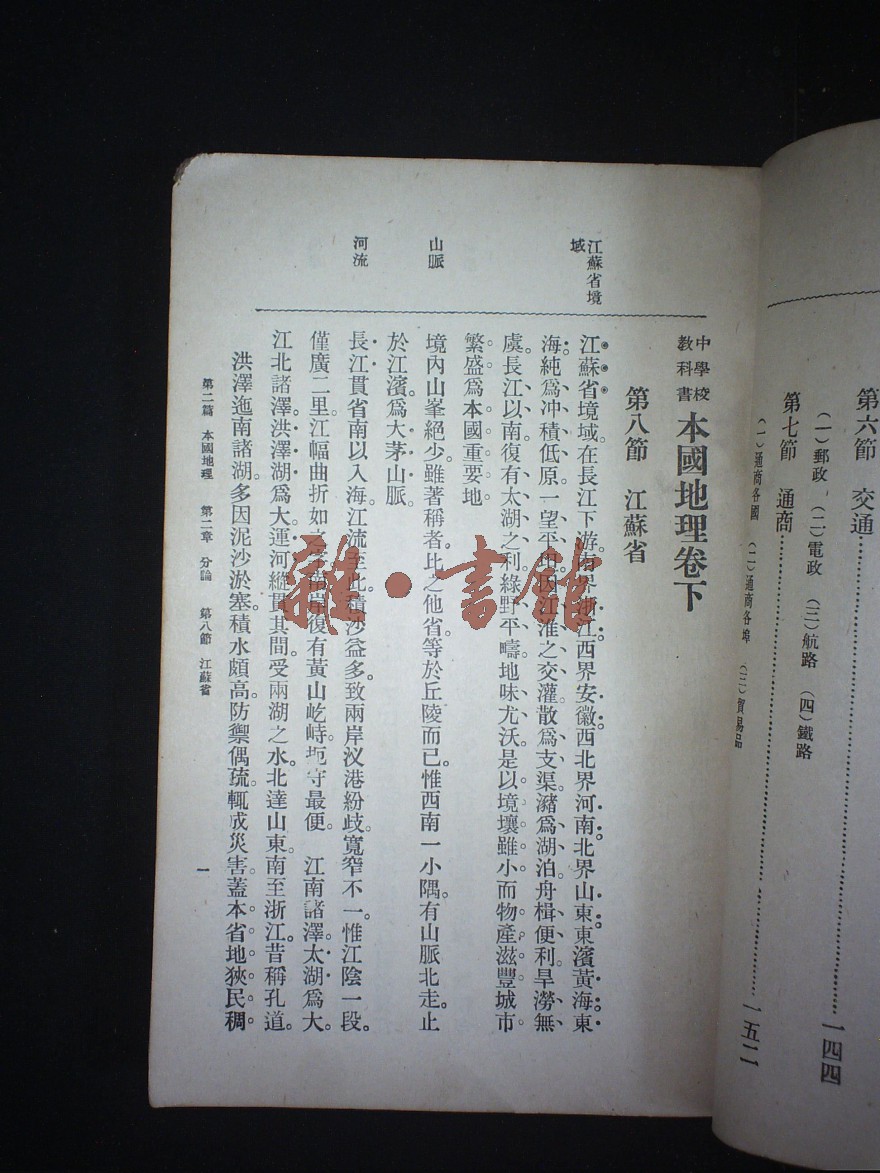 第六節　交通 一四四
(一)郵政　(二)電政　(三)航路　(四)鐵路
第七節　通商 一五二
(一)通商各國　(二)通商各埠　(三)貿易品
中學校
教科書
本國地理卷下
第八節　江蘇省
江蘇省境
域
江蘇省境域在長江下游南界浙江西界安徽西北界河南北界山東東濱黃海東
海純爲沖積低原一望平坦因江淮之交灌散爲支渠瀦爲湖泊舟楫便利旱澇無
虞長江以南復有太湖之利綠野平疇地味尤沃是以境壤雖小而物產滋豐城市
繁盛爲本國重要地
山脈
境內山峯絕少雖著稱者比之他省等於丘陵而已惟西南一小隅有山脈北走止
於江濱爲大茅山脈
河流
長江貫省南以入海江流至此積沙益多致兩岸汊港紛歧寬窄不一惟江陰一段
僅廣二里江幅曲折如 岸復有黃山屹峙扼守最便　江南諸澤太湖爲大
江北諸澤洪澤湖爲大運河縱貫其間受兩湖之水北達山東南至浙江昔稱孔道
洪澤迤南諸湖多因泥沙淤塞積水頗高防禦偶疏輒成災害蓋本省地狹民稠
第二篇　本國地理　第二章　分論　第八節　江蘇省
一
雜·書館